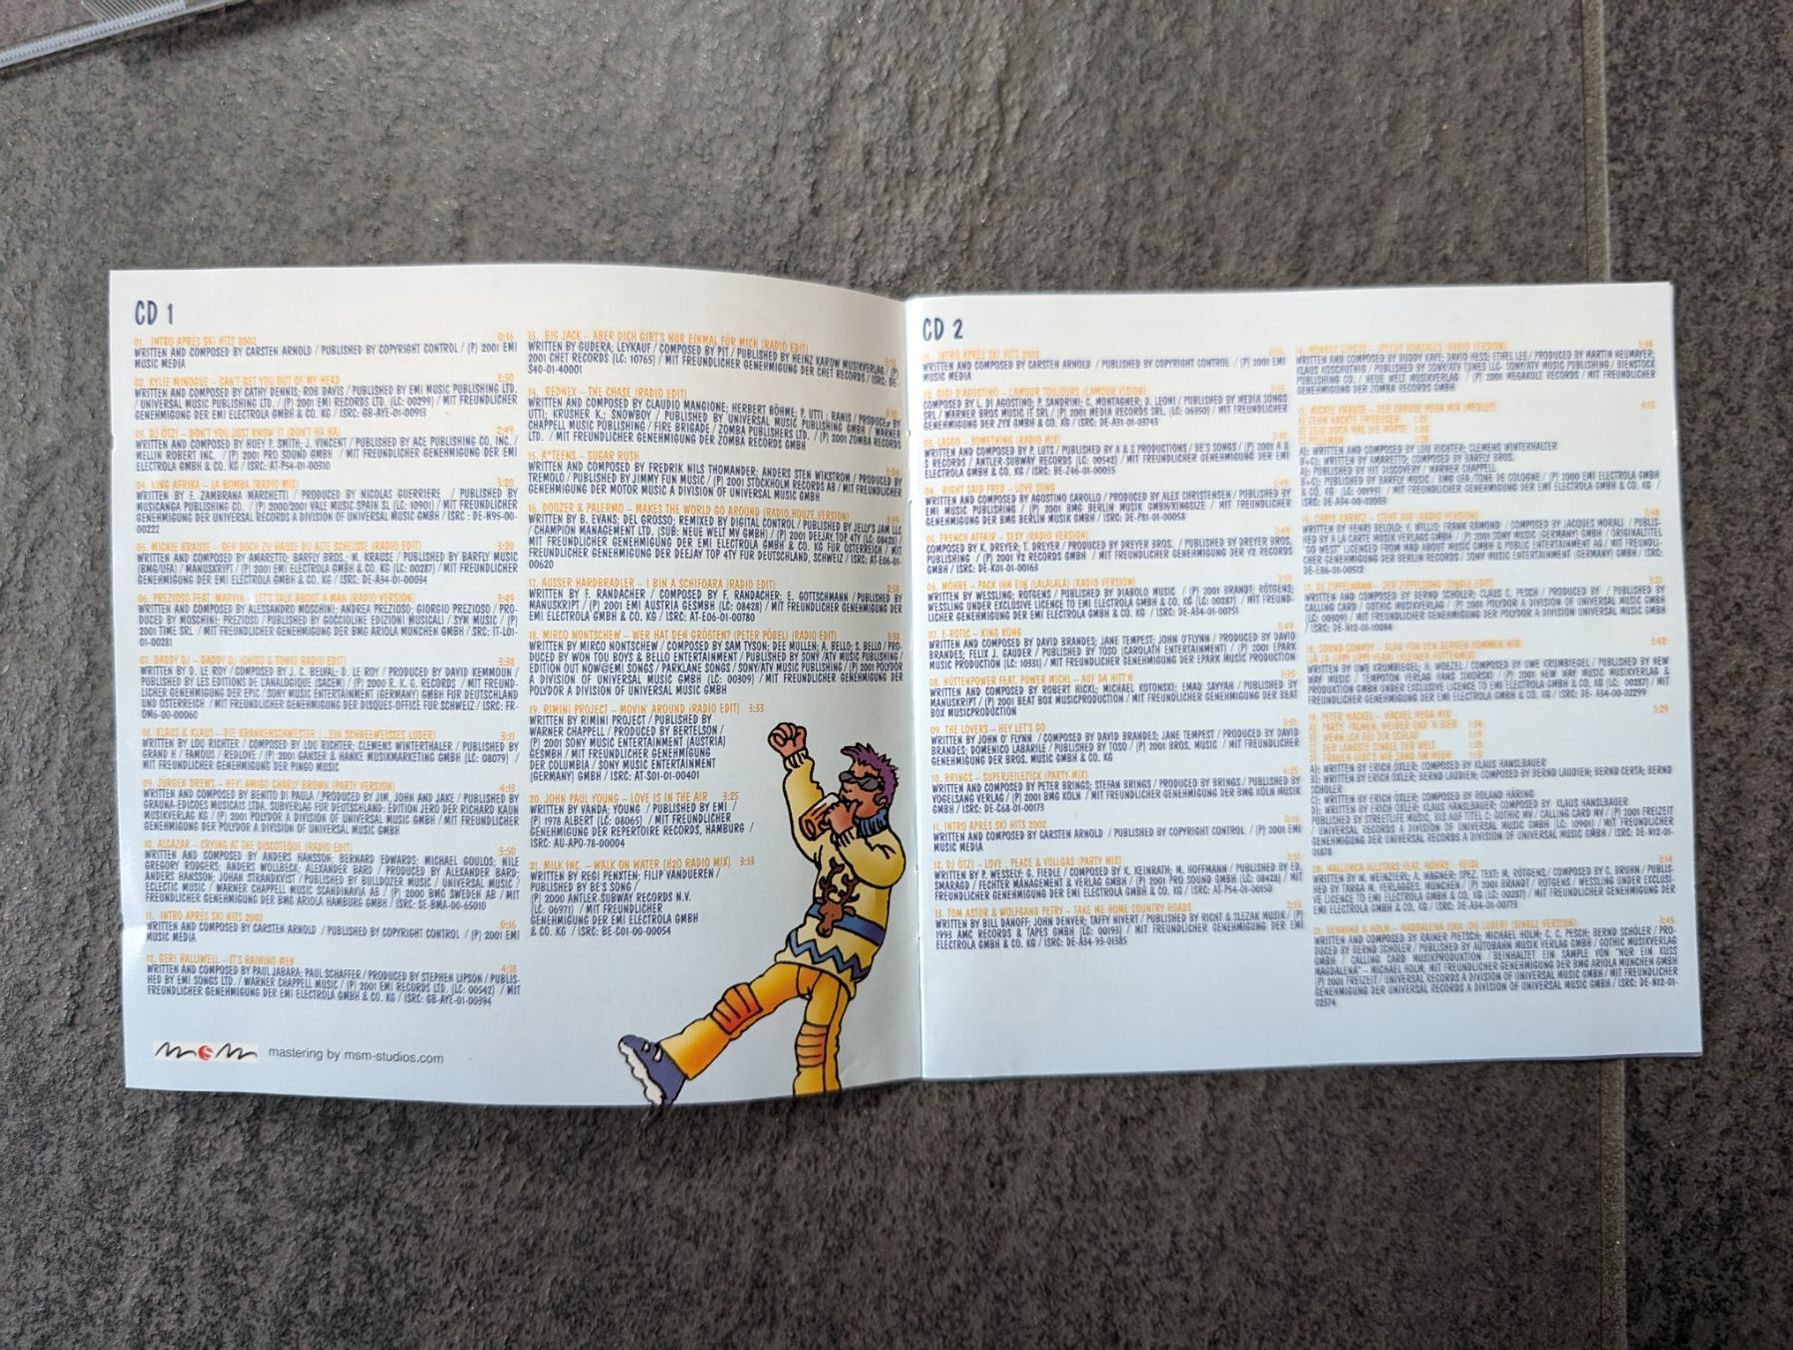 CD 1
01. INTRO APRÈS SKI HITS 2002 0:16
WRITTEN AND COMPOSED BY CARSTEN ARNOLD / PUBLISHED BY COPYRIGHT CONTROL / (P) 2001 EMI
MUSIC MEDIA
02. KYLIE MINOGUE – CAN'T GET YOU OUT OF MY HEAD 3:50
WRITTEN AND COMPOSED BY CATHY DENNIS; ROB DAVIS / PUBLISHED BY EMI MUSIC PUBLISHING LTD.
/ UNIVERSAL MUSIC PUBLISHING LTD. / (P) 2001 EMI RECORDS LTD. (LC: 00299) / MIT FREUNDLICHER
GENEHMIGUNG DER EMI ELECTROLA GMBH & CO. KG / ISRC: GB-AYE-01-00913
03. DJ ÖTZI – DON'T YOU JUST KNOW IT (DON'T HA HA) 2:49
WRITTEN AND COMPOSED BY HUEY P. SMITH; J. VINCENT / PUBLISHED BY ACE PUBLISHING CO. INC. /
MELLIN ROBERT INC. / (P) 2001 PRO SOUND GMBH / MIT FREUNDLICHER GENEHMIGUNG DER EMI
ELECTROLA GMBH & CO. KG / ISRC: AT-P54-01-00310
04. KING AFRIKA – LA BOMBA (RADIO MIX) 3:20
WRITTEN BY F. ZAMBRANA MARCHETTI / PRODUCED BY NICOLAS GUERRIERE / PUBLISHED BY
MUSICANGA PUBLISHING CO. / (P) 2000/2001 VALE MUSIC SPAIN SL (LC: 10901) / MIT FREUNDLICHER
GENEHMIGUNG DER UNIVERSAL RECORDS A DIVISION OF UNIVERSAL MUSIC GMBH / ISRC : DE-N95-00-
00222
05. MICKIE KRAUSE – GEH DOCH ZU HAUSE DU ALTE SCHEISSE (RADIO EDIT) 3:20
WRITTEN AND COMPOSED BY AMARETTO; BARFLY BROS.; M. KRAUSE / PUBLISHED BY BARFLY MUSIC
(BMG/UFA) / MANUSKRIPT / (P) 2001 EMI ELECTROLA GMBH & CO. KG (LC: 00287) / MIT FREUNDLICHER
GENEHMIGUNG DER EMI ELECTROLA GMBH & CO. KG / ISRC: DE-A34-01-00034
06. PREZIOSO FEAT. MARVIN – LET'S TALK ABOUT A MAN (RADIO VERSION) 3:49
WRITTEN AND COMPOSED BY ALESSANDRO MOSCHINI; ANDREA PREZIOSO; GIORGIO PREZIOSO / PRO-
DUCED BY MOSCHINI; PREZIOSO / PUBLISHED BY GOCCIOLINE EDIZIONI MUSICALI / SYM MUSIC / (P)
2001 TIME SRL / MIT FREUNDLICHER GENEHMIGUNG DER BMG ARIOLA MÜNCHEN GMBH / SRC: IT-L01-
01-00281
07. DADDY DJ – DADDY DJ (CHICO & TONIO RADIO EDIT) 3:38
WRITTEN BY D. LE ROY / COMPOSED BY J. C. BELVAL; D. LE ROY / PRODUCED BY DAVID KEMMOUN /
PUBLISHED BY LES EDITIONS DE L'ANALOGIQUE (SACEM) / (P) 2000 R. K. G. RECORDS / MIT FREUND-
LICHER GENEHMIGUNG DER EPIC / SONY MUSIC ENTERTAINMENT (GERMANY) GMBH FÜR DEUTSCHLAND
UND ÖSTERREICH / MIT FREUNDLICHER GENEHMIGUNG DER DISQUES-OFFICE FÜR SCHWEIZ / ISRC: FR-
0M6-00-00060
08. KLAUS & KLAUS – DIE KRANKENSCHWESTER (...EIN SCHNEEWEISSES LUDER) 3:11
WRITTEN BY LOU RICHTER / COMPOSED BY LOU RICHTER; CLEMENS WINTERTHALER / PUBLISHED BY
GRAND H / FAMOUS / REDLOVE / (P) 2001 GANSER & HANKE MUSIKMARKETING GMBH (LC: 08079) /
MIT FREUNDLICHER GENEHMIGUNG DER PINGO MUSIC
09. JÜRGEN DREWS – HEY! AMIGO CHARLY BROWN (PARTY VERSION) 4:13
WRITTEN AND COMPOSED BY BENITO DI PAULA / PRODUCED BY JIM, JOHN AND JAKE / PUBLISHED BY
GRAUNA-EDICOES MUSICAIS LTDA. SUBVERLAG FÜR DEUTSCHLAND: EDITION JERO DER RICHARD KAUN
MUSIKVERLAG KG / (P) 2001 POLYDOR A DIVISION OF UNIVERSAL MUSIC GMBH / MIT FREUNDLICHER
GENEHMIGUNG DER POLYDOR A DIVISION OF UNIVERSAL MUSIC GMBH
10. ALCAZAR – CRYING AT THE DISCOTEQUE (RADIO EDIT) 3:50
WRITTEN AND COMPOSED BY ANDERS HANSSON; BERNARD EDWARDS; MICHAEL GOULOS; NILE
GREGORY RODGERS; ANDERS WOLLBECK; ALEXANDER BARD / PRODUCED BY ALEXANDER BARD;
ANDERS HANSSON; JOHAN STRANDKVIST / PUBLISHED BY BULLDOZER MUSIC / UNIVERSAL MUSIC /
ECLECTIC MUSIC / WARNER CHAPPELL MUSIC SCANDINAVIA AB / (P) 2000 BMG SWEDEN AB / MIT
FREUNDLICHER GENEHMIGUNG DER BMG ARIOLA HAMBURG GMBH / ISRC: SE-BMA-00-65010
11. INTRO APRÈS SKI HITS 2002 0:16
WRITTEN AND COMPOSED BY CARSTEN ARNOLD / PUBLISHED BY COPYRIGHT CONTROL / (P) 2001 EMI
MUSIC MEDIA
12. GERI HALLIWELL – IT'S RAINING MEN 4:18
WRITTEN AND COMPOSED BY PAUL JABARA; PAUL SCHAFFER / PRODUCED BY STEPHEN LIPSON / PUBLIS-
HED BY EMI SONGS LTD. / WARNER CHAPPELL MUSIC / (P) 2001 EMI RECORDS LTD. (LC: 00542) / MIT
FREUNDLICHER GENEHMIGUNG DER EMI ELECTROLA GMBH & CO. KG / ISRC: GB-AYE-01-00394
msm mastering by msm-studios.com
13. BIG JACK – ABER DICH GIBT'S NUR EINMAL FÜR MICH (RADIO EDIT)
WRITTEN BY GUDERA; LEYKAUF / COMPOSED BY PIT / PUBLISHED BY HEINZ KAROW MUSIKVERLAG / (P)
2001 CHET RECORDS (LC: 10765) / MIT FREUNDLICHER GENEHMIGUNG DER CHET RECORDS / ISRC: DE-
S40-01-40001
14. REDNEX – THE CHASE (RADIO EDIT)
WRITTEN AND COMPOSED BY CLAUDIO MANGIONE; HERBERT BÖHME; P. UTTI ; RANIS / PRODUCED BY
UTTI; KRUSHER K.; SNOWBOY / PUBLISHED BY UNIVERSAL MUSIC PUBLISHING GMBH / WARNER
CHAPPELL MUSIC PUBLISHING / FIRE BRIGADE / ZOMBA PUBLISHERS LTD. / (P) 2001 ZOMBA RECORDS
LTD. / MIT FREUNDLICHER GENEHMIGUNG DER ZOMBA RECORDS GMBH
15. A*TEENS – SUGAR RUSH
WRITTEN AND COMPOSED BY FREDRIK NILS THOMANDER; ANDERS STEN WIKSTROM / PRODUCED BY
TREMOLO / PUBLISHED BY JIMMY FUN MUSIC / (P) 2001 STOCKHOLM RECORDS AB / MIT FREUNDLICHER
GENEHMIGUNG DER MOTOR MUSIC A DIVISION OF UNIVERSAL MUSIC GMBH
16. DOOZER & PALERMO – MAKES THE WORLD GO AROUND (RADIO HOUZE VERSION)
WRITTEN BY B. EVANS; DEL GROSSO; REMIXED BY DIGITAL CONTROL / PUBLISHED BY JELLY'S JAM LLC
/ CHAMPION MANAGEMENT LTD. (SUB: NEUE WELT MV GMBH) / (P) 2001 DEEJAY TOP 4TY (LC: 08428) /
MIT FREUNDLICHER GENEHMIGUNG DER EMI ELECTROLA GMBH & CO. KG FÜR ÖSTERREICH / MIT
FREUNDLICHER GENEHMIGUNG DER DEEJAY TOP 4TY FÜR DEUTSCHLAND, SCHWEIZ / ISRC: AT-E06-01-
00620
17. AUSSER HARDBRADLER – I BIN A SCHIFOARA (RADIO EDIT) 2:58
WRITTEN BY F. RANDACHER / COMPOSED BY F. RANDACHER; E. GOTTSCHMANN / PUBLISHED BY
MANUSKRIPT / (P) 2001 EMI AUSTRIA GESMBH (LC: 08428) / MIT FREUNDLICHER GENEHMIGUNG DER
EMI ELECTROLA GMBH & CO. KG / ISRC: AT-E06-01-00780
18. MIRCO NONTSCHEW – WER HAT DEN GRÖSTEN? (PETER PÖBEL) (RADIO EDIT) 3:38
WRITTEN BY MIRCO NONTSCHEW / COMPOSED BY SAM TYSON; DEE MULLEN; A. BELLO; S. BELLO / PRO-
DUCED BY WON TOU BOYS & BELLO ENTERTAINMENT / PUBLISHED BY SONY/ATV MUSIC PUBLISHING /
EDITION OUT NOW@EMI SONGS / PARKLANE SONGS / SONY/ATV MUSIC PUBLISHING / (P) 2001 POLYDOR
A DIVISION OF UNIVERSAL MUSIC GMBH (LC: 00309) / MIT FREUNDLICHER GENEHMIGUNG DER
POLYDOR A DIVISION OF UNIVERSAL MUSIC GMBH
19. RIMINI PROJECT – MOVIN' AROUND (RADIO EDIT) 3:33
WRITTEN BY RIMINI PROJECT / PUBLISHED BY
WARNER CHAPPELL / PRODUCED BY BERTELSON /
(P) 2001 SONY MUSIC ENTERTAINMENT (AUSTRIA)
GESMBH / MIT FREUNDLICHER GENEHMIGUNG
DER COLUMBIA / SONY MUSIC ENTERTAINMENT
(GERMANY) GMBH / ISRC: AT-S01-01-00401
20. JOHN PAUL YOUNG – LOVE IS IN THE AIR 3:25
WRITTEN BY VANDA; YOUNG / PUBLISHED BY EMI /
(P) 1978 ALBERT (LC: 08065) / MIT FREUNDLICHER
GENEHMIGUNG DER REPERTOIRE RECORDS, HAMBURG /
ISRC: AU-AP0-78-00004
21. MILK INC. – WALK ON WATER (H2O RADIO MIX) 3:13
WRITTEN BY REGI PENXTEN; FILIP VANDUEREN /
PUBLISHED BY BE'S SONG /
(P) 2000 ANTLER-SUBWAY RECORDS N.V.
(LC: 06971) / MIT FREUNDLICHER
GENEHMIGUNG DER EMI ELECTROLA GMBH
& CO. KG / ISRC: BE-C01-00-00054
CD 2
01. INTRO APRÈS SKI HITS 2002 0:16
WRITTEN AND COMPOSED BY CARSTEN ARNOLD / PUBLISHED BY COPYRIGHT CONTROL / (P) 2001 EMI
MUSIC MEDIA
02. GIGI D'AGOSTINO – L'AMOUR TOUJOURS (L'AMOUR VISION)
COMPOSED BY L. DI AGOSTINO; P. SANDRINI; C. MONTAGNER; D. LEONI / PUBLISHED BY MEDIA SONGS
SRL / WARNER BROS MUSIC IT SRL / (P) 2001 MEDIA RECORDS SRL. (LC: 06350) / MIT FREUNDLICHER
GENEHMIGUNG DER ZYX GMBH & CO. KG / ISRC: DE-A31-01-03743
03. LAGOO – SOMETHING (RADIO MIX)
WRITTEN AND COMPOSED BY P. LUTS / PUBLISHED BY A & S PRODUCTIONS / BE'S SONGS / (P) 2001 A &
S RECORDS / ANTLER-SUBWAY RECORDS (LC: 00542) / MIT FREUNDLICHER GENEHMIGUNG DER EMI
ELECTROLA GMBH & CO. KG / ISRC: BE-Z46-01-00055
04. RIGHT SAID FRED – LOVE SONG
WRITTEN AND COMPOSED BY AGOSTINO CAROLLO / PRODUCED BY ALEX CHRISTENSEN / PUBLISHED BY
EMI MUSIC PUBLISHING / (P) 2001 BMG BERLIN MUSIK GMBH/KINGSIZE / MIT FREUNDLICHER
GENEHMIGUNG DER BMG BERLIN MUSIK GMBH / ISRC: DE-P81-01-00058
05. FRENCH AFFAIR – SEXY (RADIO VERSION)
COMPOSED BY K. DREYER; T. DREYER / PRODUCED BY DREYER BROS. / PUBLISHED BY DREYER BROS.
PUBLISHING / (P) 2001 V2 RECORDS GMBH / MIT FREUNDLICHER GENEHMIGUNG DER V2 RECORDS
GMBH / ISRC: DE-K01-01-00163
06. MÖHRE – PACK IHN EIN (LALALALA) (RADIO VERSION)
WRITTEN BY WESSLING; RÖTGENS / PUBLISHED BY DIABOLO MUSIC / (P) 2001 BRANDT; RÖTGENS;
WESSLING UNDER EXCLUSIVE LICENCE TO EMI ELECTROLA GMBH & CO. KG (LC: 00287) / MIT FREUND-
LICHER GENEHMIGUNG DER EMI ELECTROLA GMBH & CO. KG / ISRC: DE-A34-01-00751
07. E-ROTIC – KING KONG
WRITTEN AND COMPOSED BY DAVID BRANDES; JANE TEMPEST; JOHN O'FLYNN / PRODUCED BY DAVID
BRANDES; FELIX J. GAUDER / PUBLISHED BY TOSO (CAROLATH ENTERTAINMENT) / (P) 2001 EPARK
MUSIC PRODUCTION (LC: 10331) / MIT FREUNDLICHER GENEHMIGUNG DER EPARK MUSIC PRODUCTION
08. HÜTTENPOWER FEAT. POWER MICHL – AUF DA HÜTT'N
WRITTEN AND COMPOSED BY ROBERT HICKL; MICHAEL KOTONSKI; EMAD SAYYAH / PUBLISHED BY
MANUSKRIPT / (P) 2001 BEAT BOX MUSICPRODUCTION / MIT FREUNDLICHER GENEHMIGUNG DER BEAT
BOX MUSICPRODUCTION
09. THE LOVERS – HEY LET'S GO
WRITTEN BY JOHN O' FLYNN / COMPOSED BY DAVID BRANDES; JANE TEMPEST / PRODUCED BY DAVID
BRANDES; DOMENICO LABARILE / PUBLISHED BY TOSO / (P) 2001 BROS. MUSIC / MIT FREUNDLICHER
GENEHMIGUNG DER BROS. MUSIC GMBH & CO. KG
10. BRINGS – SUPERJEILEZICK (PARTY-MIX)
WRITTEN AND COMPOSED BY PETER BRINGS; STEFAN BRINGS / PRODUCED BY BRINGS / PUBLISHED BY
VOGELSANG VERLAG / (P) 2001 BMG KÖLN / MIT FREUNDLICHER GENEHMIGUNG DER BMG KÖLN MUSIK
GMBH / ISRC: DE-C68-01-00173
11. INTRO APRÈS SKI HITS 2002 0:16
WRITTEN AND COMPOSED BY CARSTEN ARNOLD / PUBLISHED BY COPYRIGHT CONTROL / (P) 2001 EMI
MUSIC MEDIA
12. DJ ÖTZI – LOVE , PEACE & VOLLGAS (PARTY MIX)
WRITTEN BY P. WESSELY; G. FIEDLE / COMPOSED BY K. KEINRATH; M. HOFFMANN / PUBLISHED BY ED.
SMARAGD / FECHTER MANAGEMENT & VERLAG GMBH / (P) 2001 PRO SOUND GMBH (LC: 08428) / MIT
FREUNDLICHER GENEHMIGUNG DER EMI ELECTROLA GMBH & CO. KG / ISRC: AT-P54-01-00150
13. TOM ASTOR & WOLFGANG PETRY – TAKE ME HOME COUNTRY ROADS
WRITTEN BY BILL DANOFF; JOHN DENVER; TAFFY NIVERT / PUBLISHED BY RIGHT & SLEZAK MUSIK / (P)
1993 AMC RECORDS & TAPES GMBH (LC: 00193) / MIT FREUNDLICHER GENEHMIGUNG DER EMI
ELECTROLA GMBH & CO. KG / ISRC: DE-A34-93-01385
14. MONKEY CIRCUS – SPEEDY GONZALES (RADIO VERSION)
WRITTEN AND COMPOSED BY BUDDY KAYE; DAVID HESS; ETHEL LEE / PRODUCED BY MARTIN NEUMAYER;
KLAUS KOSCHUTNIG / PUBLISHED BY SONY/ATV TUNES LLC- SONY/ATV MUSIC PUBLISHING / BIENSTOCK
PUBLISHING CO. / NEUE WELT MUSIKVERLAG / (P) 2001 MEGAKULT RECORDS / MIT FREUNDLICHER
GENEHMIGUNG DER ZOMBA RECORDS GMBH
15. MICKIE KRAUSE – DER KRAUSE MEGA MIX (MEDLEY) 4:13
A) ZEHN NACKTE FRISEUSEN
B) ZEIG DOCH MAL DIE MÖPSE
C)
A): WRITTEN AND COMPOSED BY LOU RICHTER; CLEMENS WINTERHALTER
B+C): WRITTEN BY AMARETTO; COMPOSED BY BARFLY BROS.
A): PUBLISHED BY HIT DISCOVERY / WARNER CHAPPELL
B+C): PUBLISHED BY BARFLY MUSIC / BMG UFA /TONE DE COLOGNE / (P) 2000 EMI ELECTROLA GMBH
& CO. KG / MIT FREUNDLICHER GENEHMIGUNG DER EMI ELECTROLA GMBH & CO. KG /
ISRC: DE-A34-00-02008
16. CHRIS RABATZ – STEHT AUF (RADIO VERSION)
WRITTEN BY HENRI BELOLO; V. WILLIS; FRANK RAMOND / COMPOSED BY JACQUES MORALI / PUBLIS-
HED BY A LA CARTE MUSIK GROUP GMBH
"GO WEST"
DE-E86-01-00512
17. DJ ZIPFELMANN – DER ZIPFELSONG (SINGLE EDIT)
WRITTEN AND COMPOSED BY BERND SCHÖLER; CLAUS C. PESCH / PRODUCED BY / PUBLISHED BY
CALLING CARD / GOTHIC MUSIKVERLAG / (P) 2001 POLYDOR A DIVISION OF UNIVERSAL MUSIC GMBH
/ MIT FREUNDLICHER GENEHMIGUNG DER POLYDOR A DIVISION OF UNIVERSAL MUSIC GMBH
/ ISRC: DE-N12-01-10084
18. SOUND CONVOY – BLAU VON DEN BERGEN KOMMEN WIR 3:42
WRITTEN BY UWE KRUMBIEGEL; H. WOEZEL / COMPOSED BY UWE KRUMBIEGEL / PUBLISHED BY NEW
WAY MUSIC / TEMPOTON VERLAG HANS SIKORSKI / (P) 2001 NEW WAY MUSIC MUSIKVERLAG &
PRODUKTION GMBH UNDER EXCLUSIVE LICENCE TO EMI ELECTROLA GMBH & CO. KG / MIT
FREUNDLICHER GENEHMIGUNG DER EMI ELECTROLA GMBH & CO. KG / ISRC: DE- A34-00-02299
19. PETER WACKEL – WACKEL MEGA MIX 5:29
B) WENN ICH BEI DIR SCHLAF
C) DER LÄNGSTE SINGLE DER WELT
A): WRITTEN BY ERICH ÖXLER; COMPOSED BY KLAUS HANSLBAUER
B): WRITTEN BY ERICH ÖXLER; BERND LAUDIEN; COMPOSED BY BERND LAUDIEN; BERND CERTA; BERND
SCHÖLER
C): WRITTEN BY ERICH ÖXLER; COMPOSED BY ROLAND HÄRING
D): WRITTEN BY ERICH ÖXLER; KLAUS HANSLBAUER; COMPOSED BY KLAUS HANSLBAUER
PUBLISHED BY STREETLIFE MUSIC, BIS AUF TITEL C: GOTHIC MV / CALLING CARD MV / (P) 2001 FREIZEIT
/ UNIVERSAL RECORDS A DIVISION OF UNIVERSAL MUSIC GMBH (LC: 10901) / MIT FREUNDLICHER
GENEHMIGUNG DER UNIVERSAL RECORDS A DIVISION OF UNIVERSAL MUSIC GMBH / ISRC: DE-N12-01-
01878
20. MALLORCA ALLSTARS FEAT. MÖHRE – HEIDI 3:14
WRITTEN BY W. WEINZIERL; A. WAGNER; SPEZ. TEXT: M. RÖTGENS / COMPOSED BY C. BRUHN / PUBLIS-
HED BY TARGA M. VERLAGGES. MÜNCHEN / (P) 2001 BRANDT / RÖTGENS / WESSLING UNDER EXCLUSI-
VE LICENCE TO EMI ELECTROLA GMBH & CO. KG (LC: 00287) / MIT FREUNDLICHER GENEHMIGUNG DER
EMI ELECTROLA GMBH & CO. KG / ISRC: DE-A34-01-00775
21. HENNING & HOLM – MADDALENA 2001 (DU LUDER) (SINGLE VERSION) 3:45
WRITTEN AND COMPOSED BY RAINER PIETSCH; MICHAEL HOLM; C. C. PESCH; BERND SCHÖLER / PRO-
DUCED BY BERND SCHÖLER / PUBLISHED BY AUTOBAHN MUSIK VERLAG GMBH / GOTHIC MUSIKVERLAG
GMBH / CALLING CARD MUSIKPRODUKTION / BEINHALTET EIN SAMPLE VON "NUR EIN KUSS
MAGDALENA" – MICHAEL HOLM, MIT FREUNDLICHER GENEHMIGUNG DER BMG ARIOLA MÜNCHEN GMBH
(P) 2001 FREIZEIT / UNIVERSAL RECORDS A DIVISION OF UNIVERSAL MUSIC GMBH / MIT FREUNDLICHER
GENEHMIGUNG DER UNIVERSAL RECORDS A DIVISION OF UNIVERSAL MUSIC GMBH / ISRC: DE-N12-01-
02374